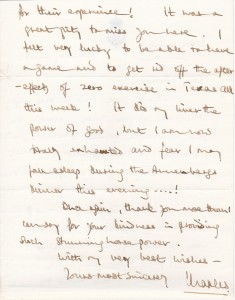 for their experience! It was a
great pity to miss you here. I
felt very lucky to be able to have
a game and to get rid off the after
-effects of zero exercise in Texas all
this week! It did my liver the
power of good, but I am now
totally exhausted and fear I may
fall asleep during the Annenbergs
dinner this evening....!
Once again, thank you more than I
can say for your kindness in providing
such stunning horse power.
With my very best wishes -
Yours most sincerely
Charles